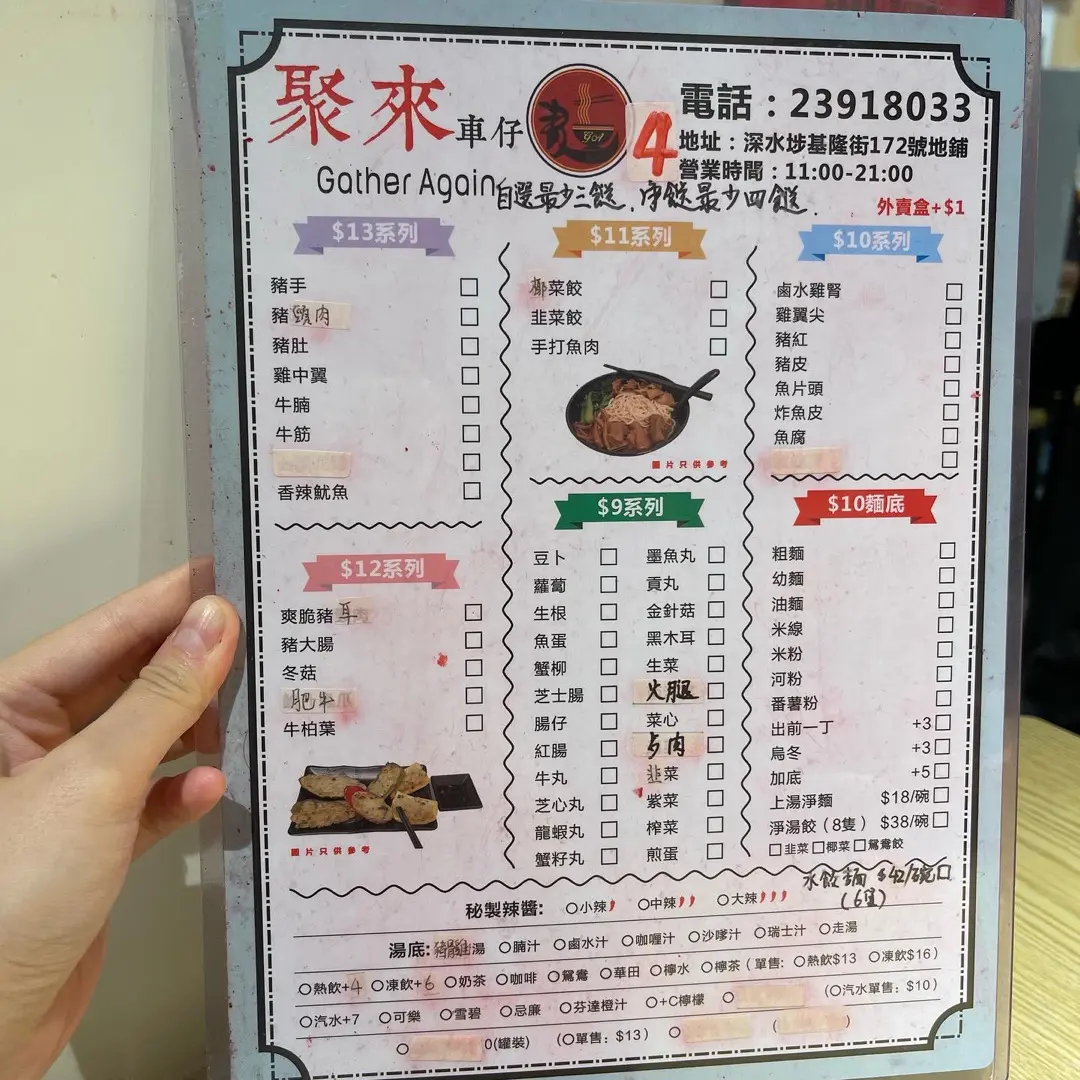 聚來車仔
Gather Again
4
電話：23918033
地址：深水埗基隆街172號地鋪
營業時間：11:00-21:00
自選最少三餸，淨餸最少四餸．
外賣盒+$1
$13系列
豬手
豬頸肉
豬肚
雞中翼
牛腩
牛筋
香辣魷魚
$12系列
爽脆豬耳
豬大腸
冬菇
肥牛
牛柏葉
圖片只供參考
$11系列
椰菜餃
韭菜餃
手打魚肉
圖片只供參考
$9系列
豆卜
蘿蔔
生根
魚蛋
蟹柳
芝士腸
腸仔
紅腸
牛丸
芝心丸
龍蝦丸
蟹籽丸
墨魚丸
貢丸
金針菇
黑木耳
生菜
火腿
菜心
肉
韭菜
紫菜
榨菜
煎蛋
$10系列
鹵水雞腎
雞翼尖
豬紅
豬皮
魚片頭
炸魚皮
魚腐
$10麵底
粗麵
幼麵
油麵
米線
米粉
河粉
番薯粉
出前一丁 +3
烏冬 +3
加底 +5
上湯淨麵 $18/碗
淨湯餃（8隻） $38/碗
韭菜 椰菜 鴛鴦餃
水餃麵 $42/碗
(6隻)
秘製辣醬: 小辣 中辣 大辣
湯底: 豬雞湯 腩汁 鹵水汁 咖喱汁 沙嗲汁 瑞士汁 走湯
熱飲+4 凍飲+6 奶茶 咖啡 鴛鴦 華田 檸水 檸茶（單售: 熱飲$13 凍飲$16）
汽水+7 可樂 雪碧 忌廉 芬達橙汁 +C檸檬 （汽水單售: $10）
0(罐裝) （單售: $13）